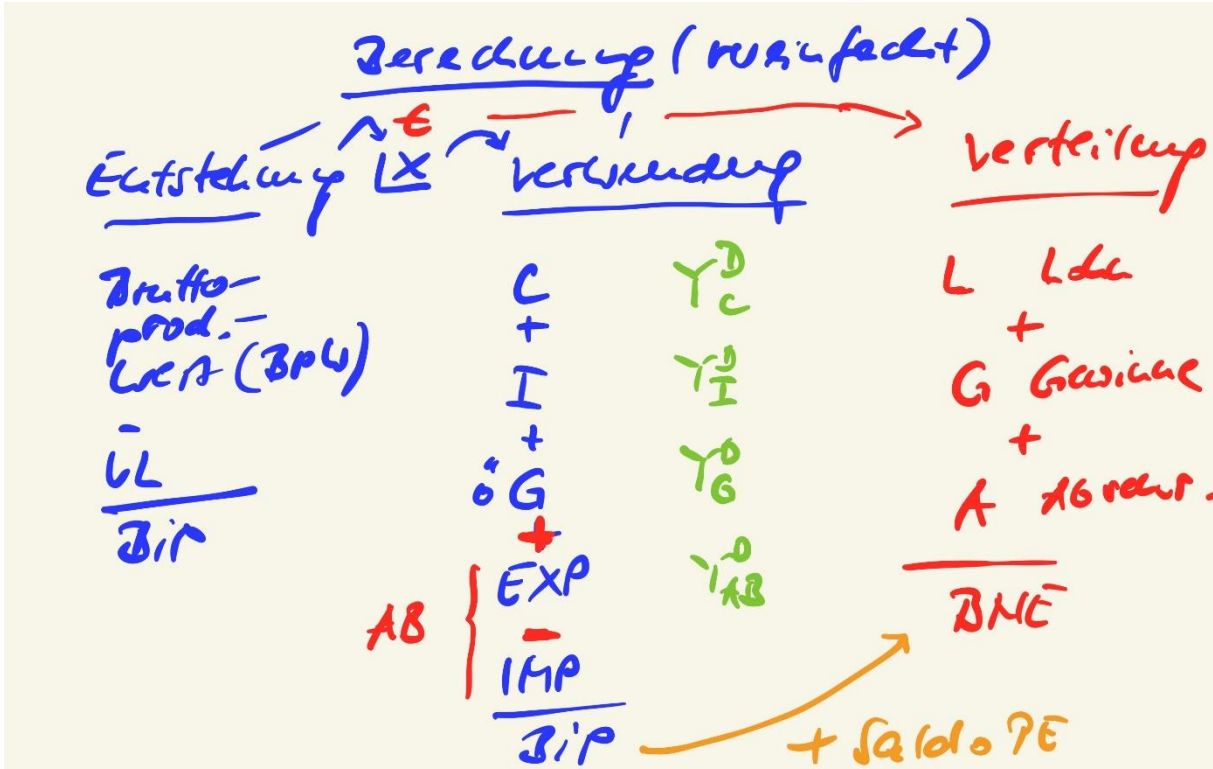 Berechnung (vereinfacht)
€
Entstehung LX Verwendung Verteilung
Brutto-
prod.-
wert (BPW)
-
VL
BIP
C
+
I
+
öG
+
EXP
-
IMP
BIP
AB
Y D C
Y D I
Y D G
Y D AB
L Löhne
+
G Gewinne
+
A Abschr.
BNE
+ Saldo PE